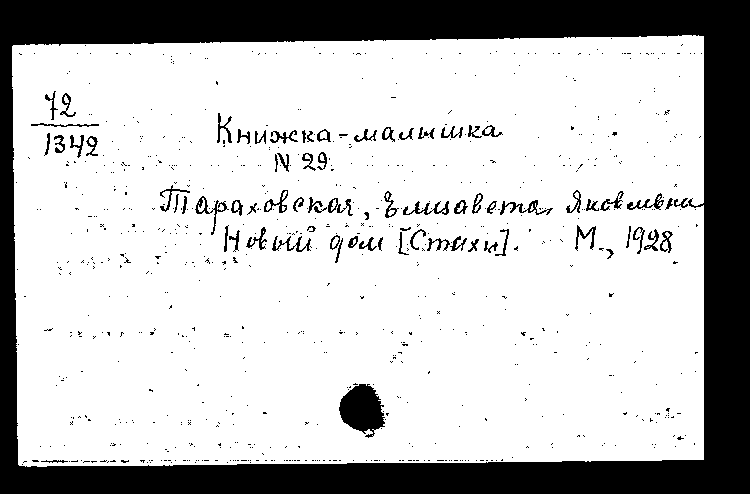 72
1342
Книжка-малышка
N 29.
Тараховская, Елизавета Яковлевна
Новый дом [Стихи]. М., 1928